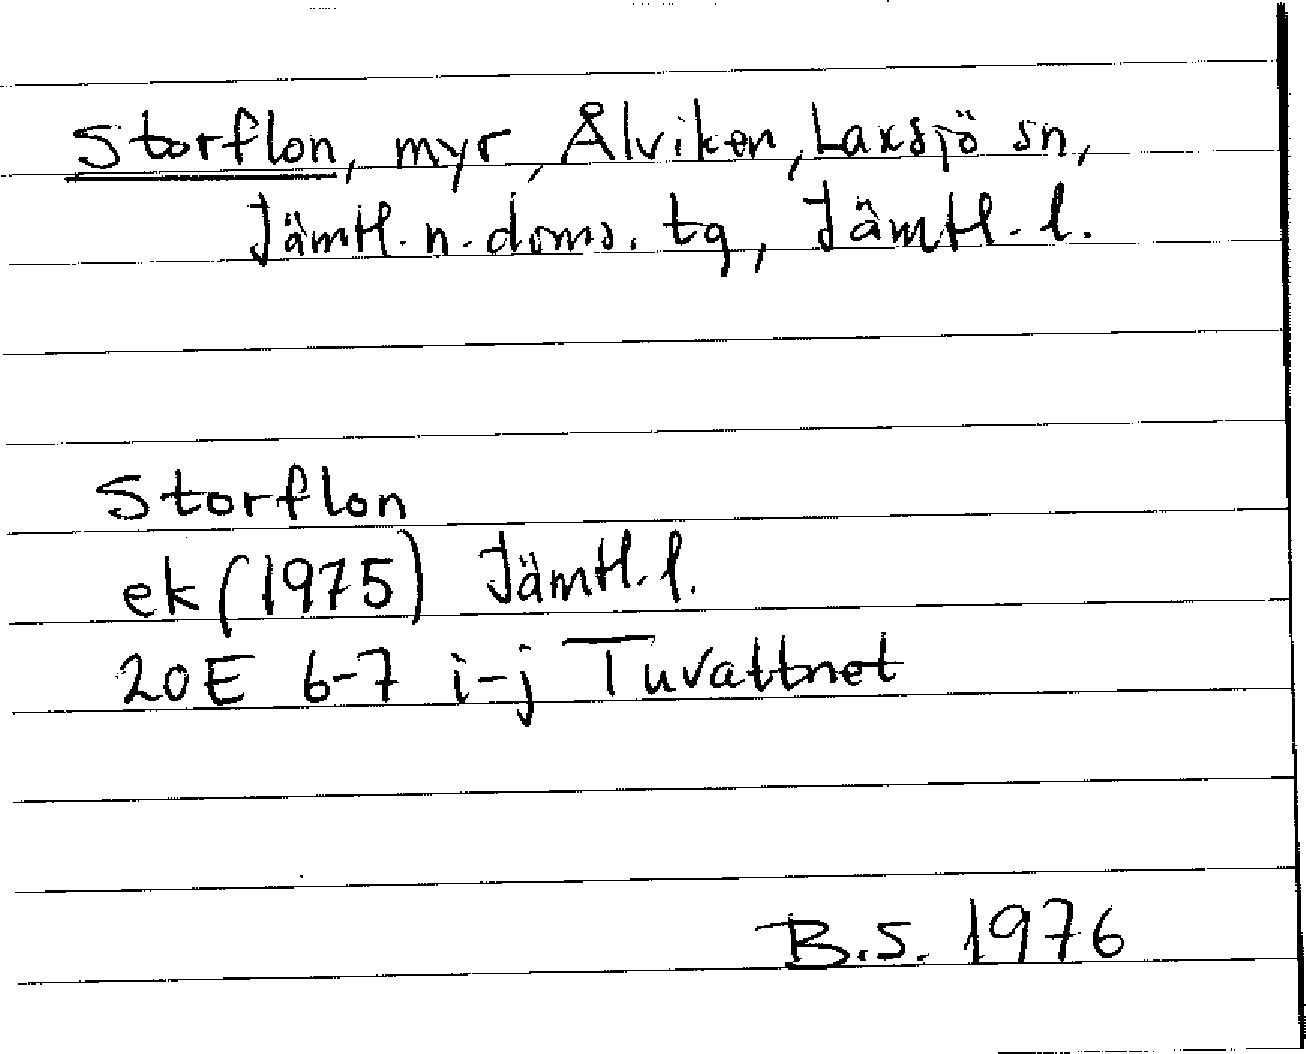 Storflon, myr, Ålviken, Laxsjö sn,
Jämtl. n. doms. tg, Jämtl. l.
Storflon
ek (1975) Jämtl. l.
20E 6-7 i-j Tuvattnet
B.S. 1976